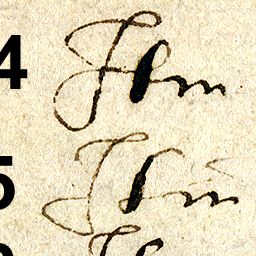 4 Itm
5 Itm̄